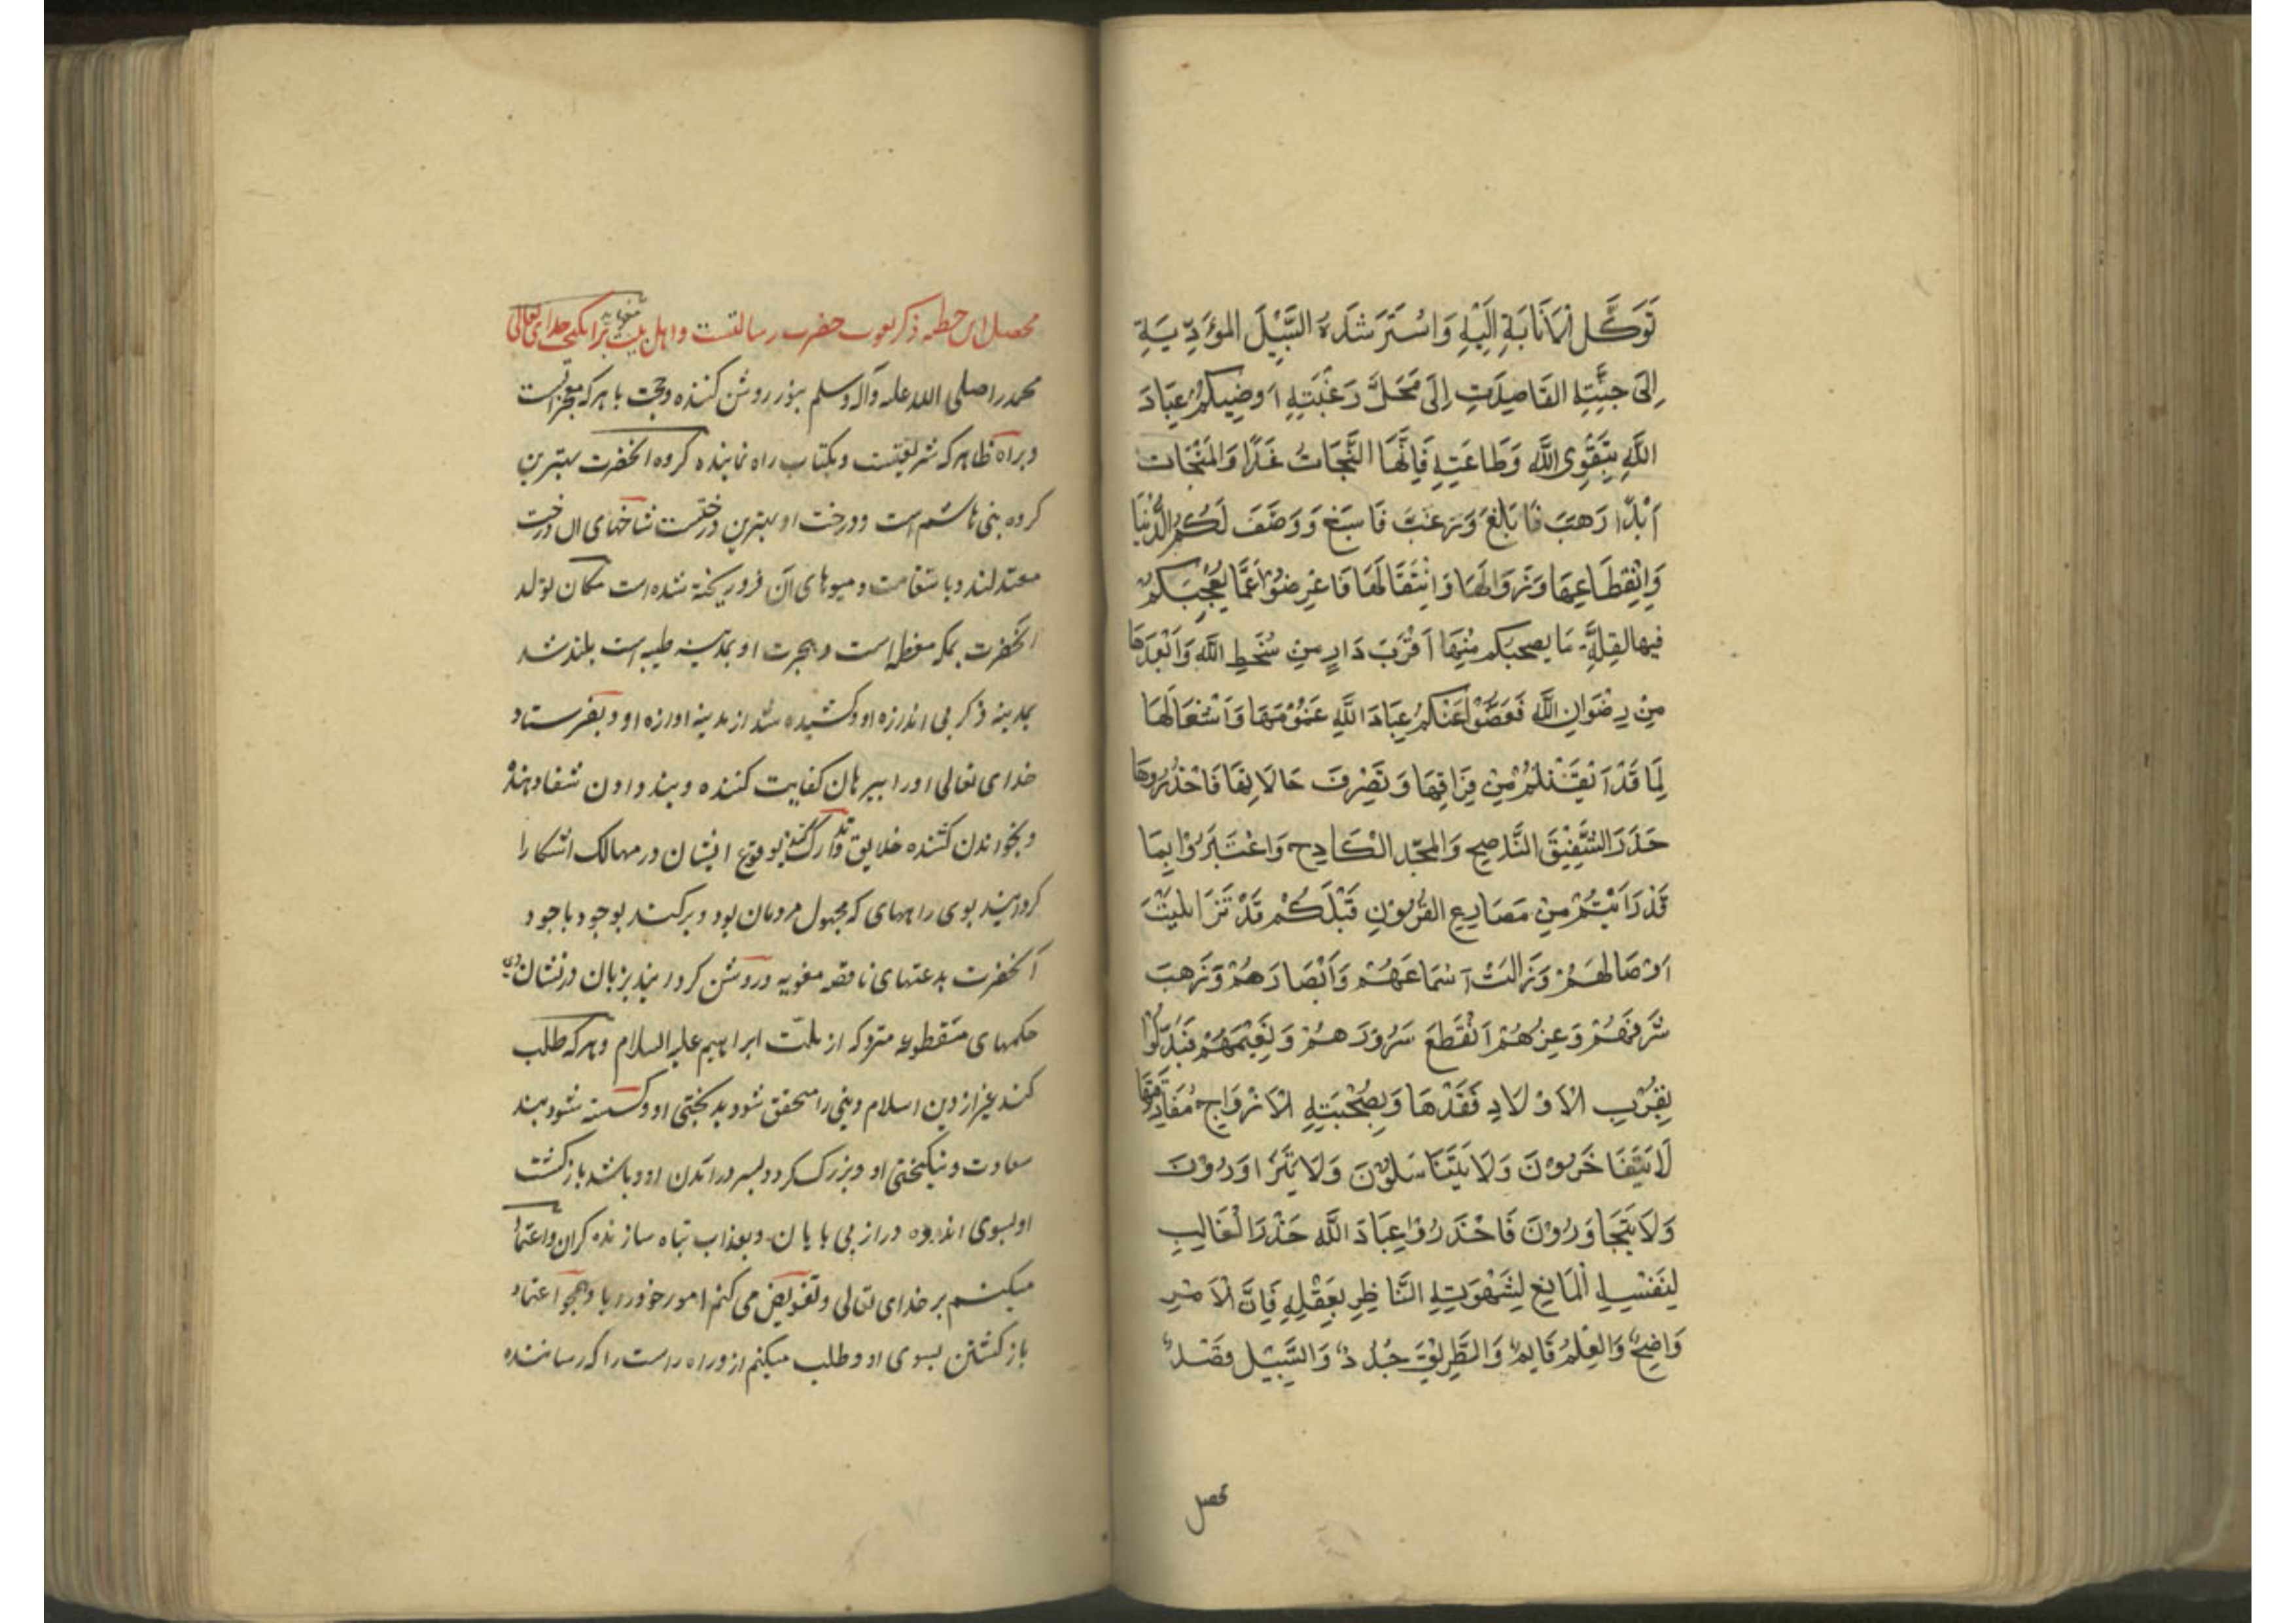 تَوَكَّلَ الْاَنَابَةِ اِلَيْهِ وَاسْتَرْشَدَهُ السَّبِيْلَ المُؤَدِّيَةِ
اِلَى جَنَّتِهِ القَاصِدَتِ اِلَى مَحَلَّ رَغْبَتِهِ اُوصِيكُمْ عِبَادَ
اللَّهِ بِتَقْوِى اللَّهِ وَطَاعَتِهِ فَاِنَّهَا النَّجَاتُ غَدًا وَالمَنْجَاتُ
اَبْدًا رَهَبَ فَاَبْلَغَ وَرَغَبَ فَاَسْبَغَ وَوَصَفَ لَكُمُ الدُّنْيَا
وَانْقِطَاعِهَا وَزَوَالَهَا وَانْتِقَالَهَا فَاعْرِضُوْا عَمَّا يُعْجِبُكُمْ
فيها لقِلَّةِ مَا يصحبكم مِنْهَا اَقْرَبَ دَارٍ مِنْ سُخَطِ اللَّهِ وَاَبْعَدَهَا
مِنْ رِضْوَانِ اللَّهِ فَغَضُّوْا عَنْكُمْ عِبَادَ اللَّهِ غَمُوْمَهَا وَاَشْغَالَهَا
لِمَا قَدْ اَيْقَنْتُمْ مِنْ فِرَاقِهَا وَتَصْرِفَ حَالَاتِهَا فَاحْذَرُوهَا
حَذَرَ الشَّفِيْقِ النَّاصِحِ وَالمُجِدِّ الكَادِحِ وَاعْتَبِرُوْا بِمَا
قَدْ رَاَيْتُمْ مِنْ مَصَارِعِ القُرُوْنِ قَبْلَكُمْ قَدْ تَزَايَلَتْ
اَوْصَالُهُمْ وَزَالَتْ اَسْمَاعَهُمْ وَاَبْصَارَهُمْ وَذَهَبَ
شَرَفُهُمْ وَعِزُّهُمْ اَنْقَطَعَ سَرُوْرَهُمْ وَنَعِيْمَهُمْ فَبُدِّلُوْا
بِقُرْبِ الْاَوْلَادِ فَقْدَهَا وَبِصُحْبَتِهِ الْاَزْوَاجِ مُفَارَقَتَهَا
لَا يَتَفَاخَرُوْنَ وَلَا يَتَنَاسَلُوْنَ وَلَا يَتَزَاوَرُوْنَ
وَلَا يَتَجَاوَرُوْنَ فَاحْذَرُوْا عِبَادَ اللَّهِ حَذَرَ الْغَالِبِ
لِنَفْسِهِ الْمَانِعِ لِشَهْوَتِهِ النَّاظِرِ بِعَقْلِهِ فَاِنَّ الْاَمْرَ
وَاضِحٌ وَالعِلْمُ قَايِمٌ وَالطَّرِيْقَ جُدُدٌ وَالسَّبِيْلَ قَصْدٌ
محصل
محصل این خطبه ذکر نعوت حضرت رسالتست و اهل بیت برانکیخت خدای تعالی
محمد را صلی الله علیه وآله وسلم بنور روشن کننده وحجت باهر که معجزاتست
وبراه ظاهر که شریعتست وبکتاب راه نماینده کروه انحضرت بهترین
کروه بنی هاشم است ودرخت او بهترین درختست شاخهای ان درخت
معتدلند وباستقامت ومیوهای آن فرو ریخته شده است مکان تولد
انحضرت بمکه معظمه است وهجرت او بمدینه طیبه است بلند شد
بمدینه ذکر بی اندازه او وکشیده شد از مدینه اوازه او وبفرستاد
خدای تعالی اورا ببرهان کفایت کننده وپند دادن شفا دهنده
وبخواندن کشنده خلایق وتدارک کننده بوقوع ایشان در مهالک اشکارا
کردانید بوی راههای که مجهول مردمان بود وبرکند بوجود باجود
آنحضرت بدعتهای ناقصه مغویه وروشن کردانید بزبان درفشان
حکمهای منقطوعه متروکه از ملت ابراهیم علیه السلام وهر که طلب
کند غیر از دین اسلام دینی را متحقق شود بدبختی او وکسسته شود بند
سعادت ونیکبختی او وبزرک کردد بسر درآمدن او وباشد بازکشت
او بسوی اندوه دراز بی پایان وبعذاب تباه سازنده کران واعتماد
میکنم بر خدای تعالی وتفویض می کنم امور خود را با وهمچو اعتماد
بازکشتن بسوی او وطلب میکنم ازو راه راست را که رساننده